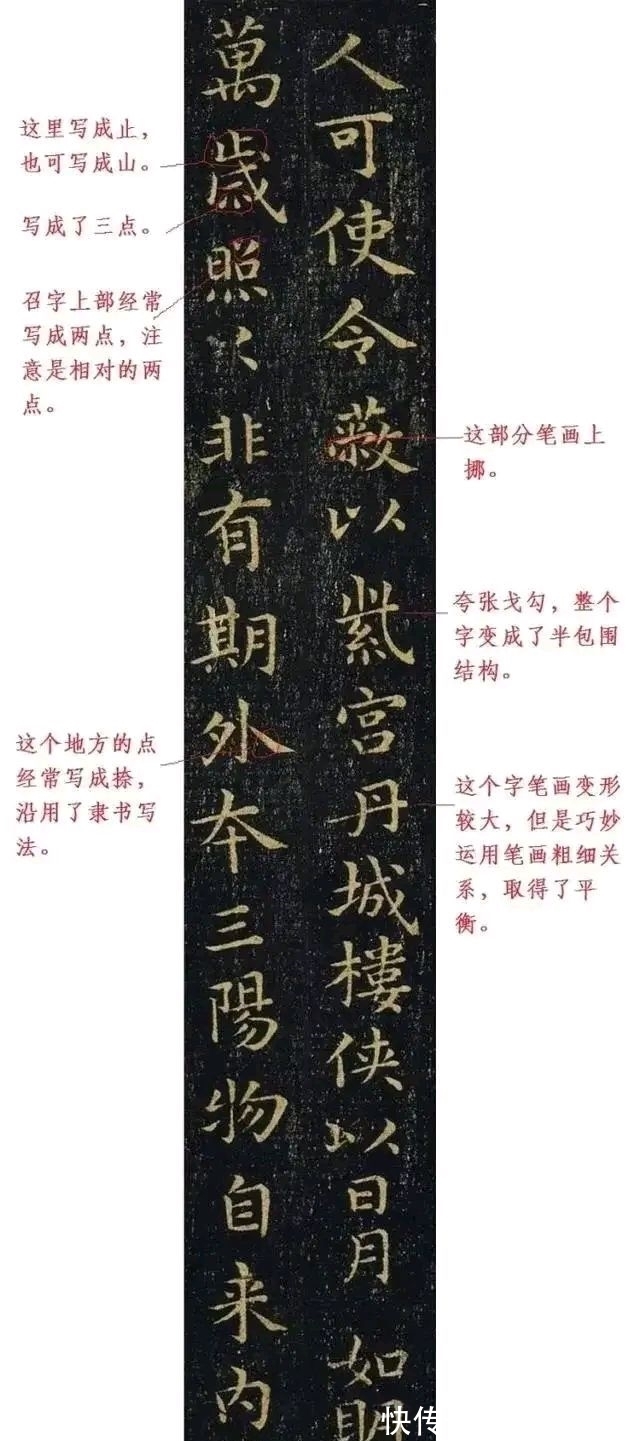 人可使令蔽以紫宫丹城樓侠以日月如眀
萬歲照〻非有期外本三陽物自来内
这里写成止，
也可写成山。
写成了三点。
召字上部经常
写成两点，注
意是相对的两
点。
这个地方的点
经常写成捺，
沿用了隶书写
法。
这部分笔画上
挪。
夸张戈勾，整个
字变成了半包围
结构。
这个字笔画变形
较大，但是巧妙
运用笔画粗细关
系，取得了平
衡。
快传